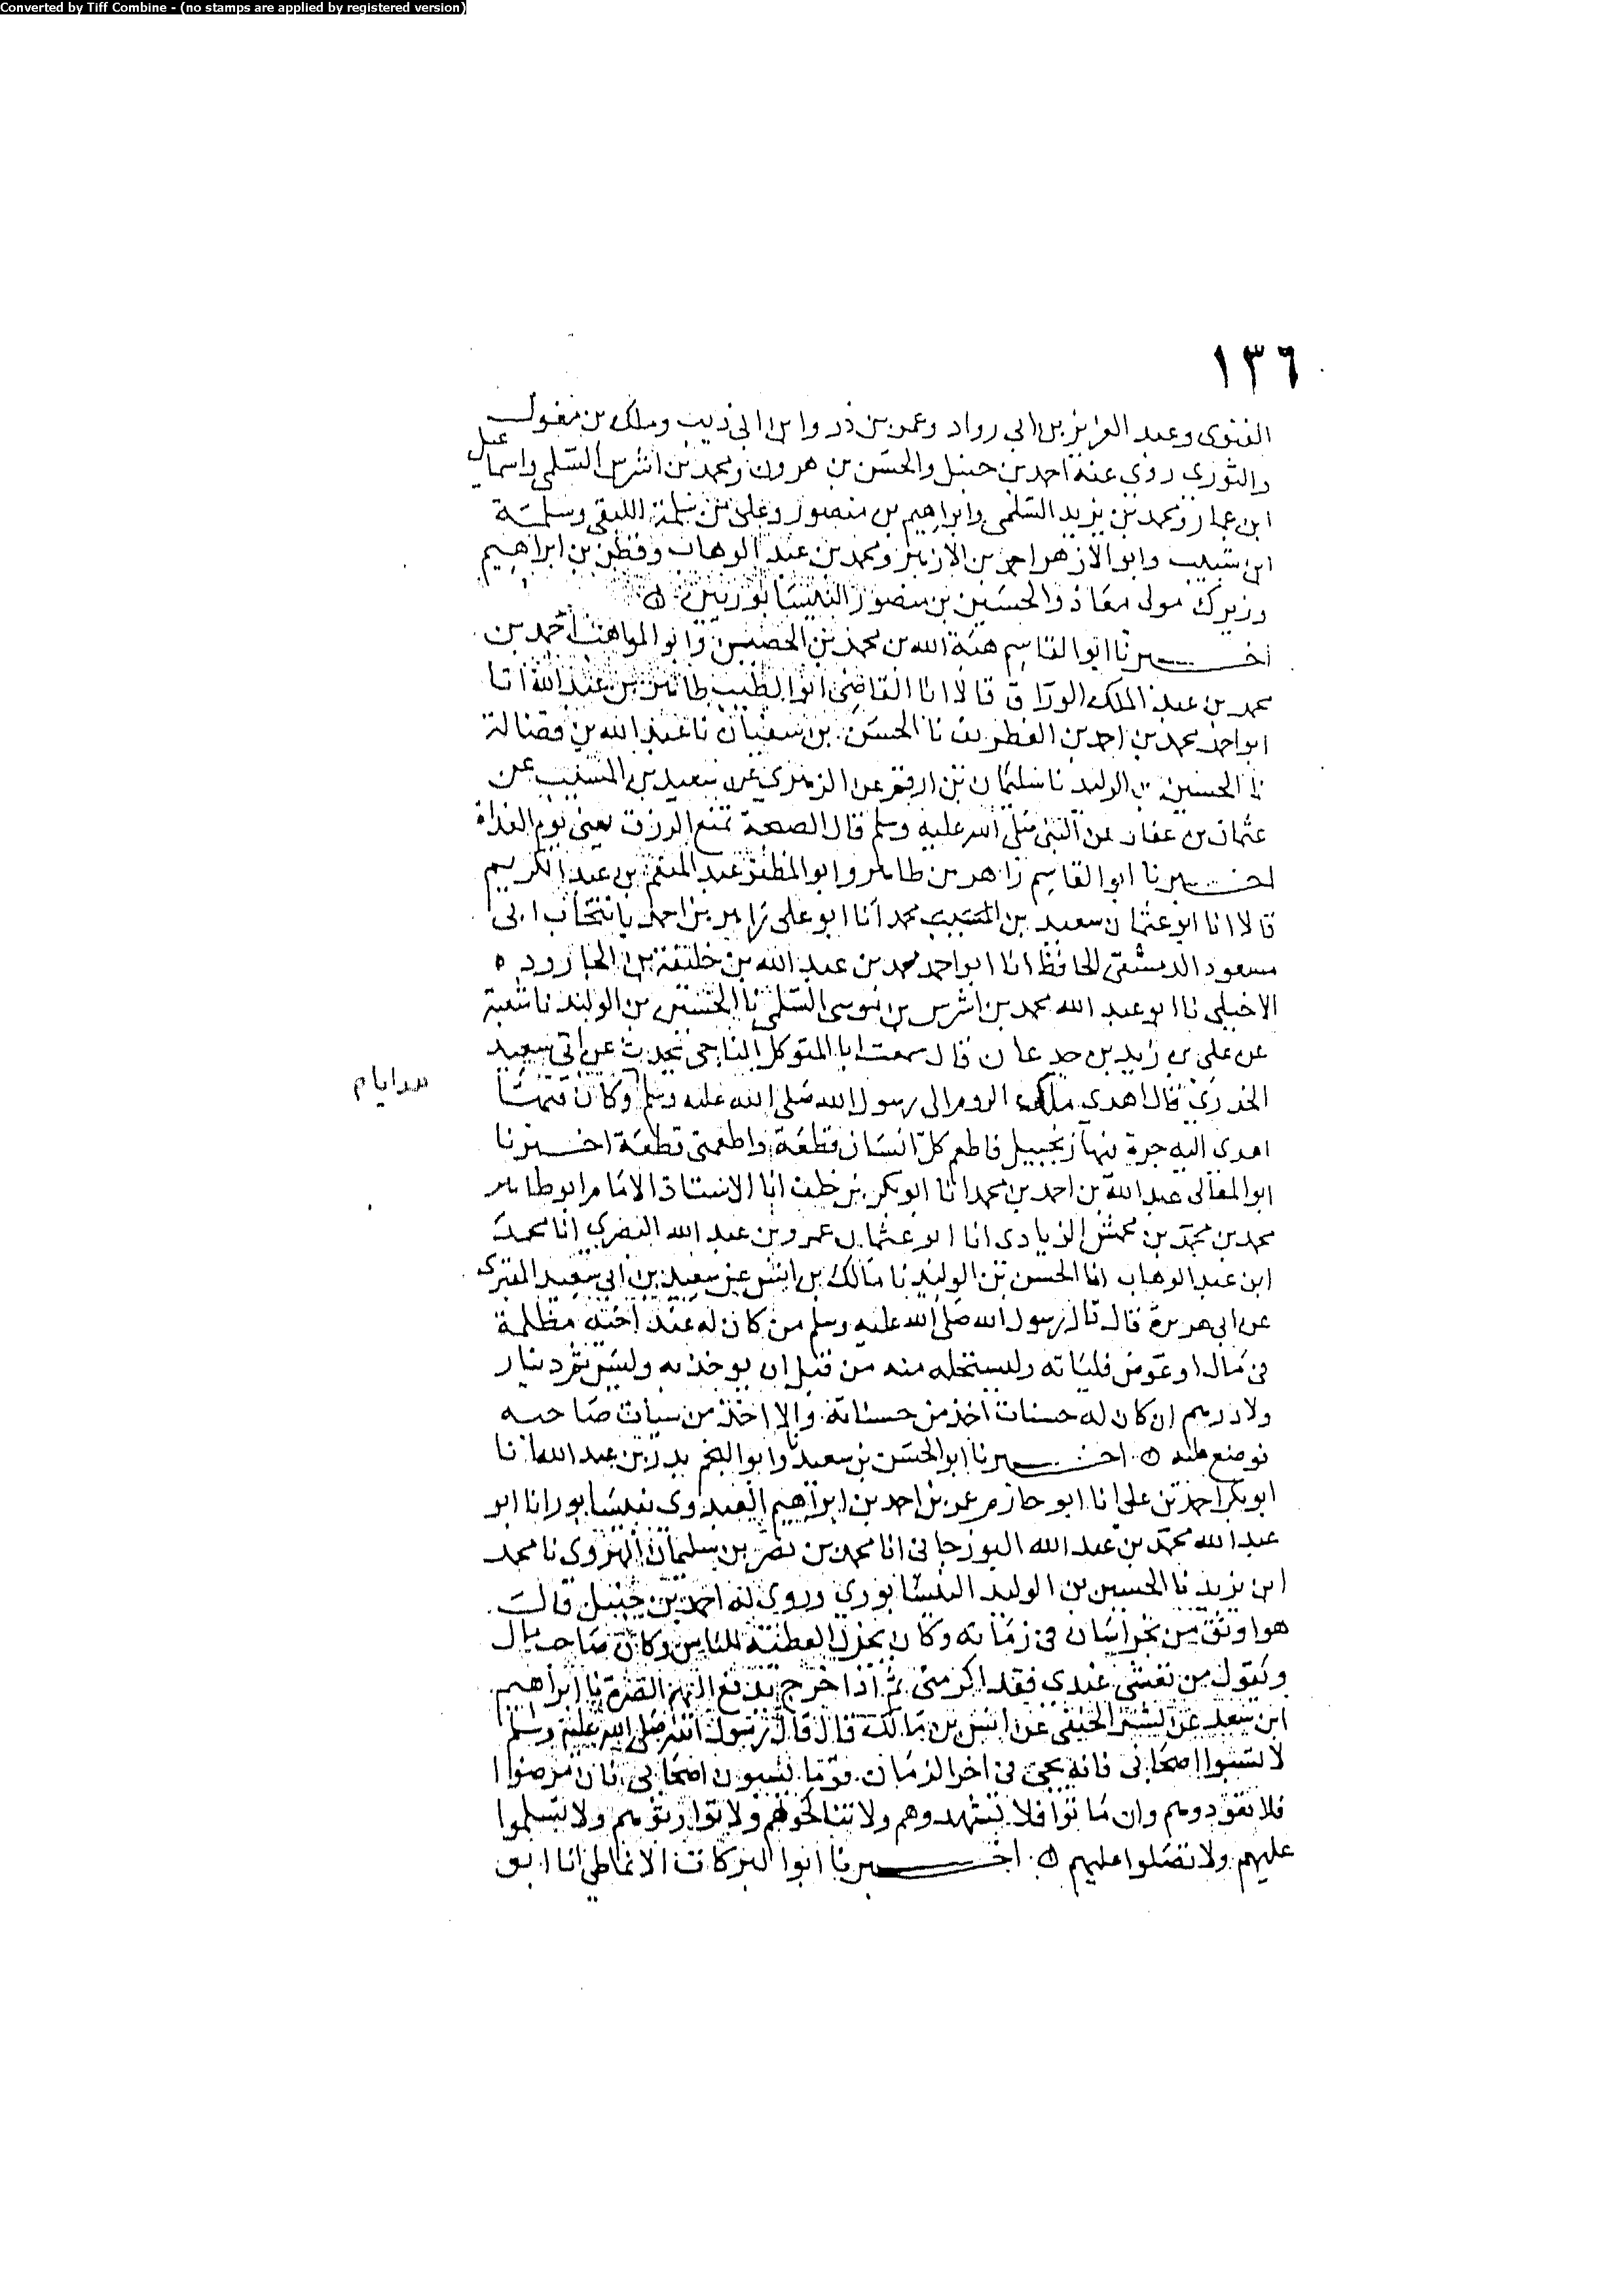 Converted by Tiff Combine - (no stamps are applied by registered version)
١٣٦
الغنوى وعبد العزيز بن ابى رواد وعمر بن ذر وابن ابى ذيب وملك بن مغول
والثورى روى عنه احمد بن حنبل والحسن بن هرون ومحمد بن اشرس السلمى واسماعيل
ابن عمار ومحمد بن يزيد السلمى وابراهيم بن منصور وعلى بن سلمة اللبقى وسلمة
ابن شبيب وابو الازهر احمد بن الازهر ومحمد بن عبد الوهاب وقطن بن ابراهيم
وزيرك مولى معاذ والحسين بن منصور النيسابوريين
اخبرنا ابو القاسم هبة الله بن محمد بن الحصين وابو المواهب احمد بن
محمد بن عبد الملك الوراق قالا انا القاضى ابو الطيب طاهر بن عبد الله انا
ابو احمد محمد بن احمد بن الغطريف نا الحسن بن سفيان نا عبد الله بن فضالة
نا الحسين بن الوليد نا سليمان بن ارقم عن الزهرى عن سعيد بن المسيب عن
عثمان بن عفان عن النبى صلى الله عليه وسلم قال الصبحة تمنع الرزق يعنى نوم الغداة
اخبرنا ابو القاسم زاهر بن طاهر وابو المظفر عبد المنعم بن عبد الكريم
قالا انا ابو عثمان سعيد بن محمد انا ابو على زاهر بن احمد بانتخاب ابى
مسعود الدمشقى الحافظ انا ابو احمد محمد بن عبد الله بن خليفة بن الجارود
نا ابو عبد الله محمد بن اشرس بن موسى السلمى نا الحسين بن الوليد نا شعبة
عن على بن زيد بن جدعان قال سمعت ابا المتوكل الناجى يحدث عن ابى سعيد
الخدرى قال اهدى ملك الروم الى رسول الله صلى الله عليه وسلم وكان فيما
اهدى اليه جرة فيها زنجبيل فاطعم كل انسان قطعة واطعمنى قطعة اخبرنا
ابو المعالى عبد الله بن احمد بن محمد انا ابو بكر بن خلف انا الاستاذ الامام ابو طاهر
محمد بن محمد بن محمش الزيادى انا ابو عثمان عمرو بن عبد الله البصرى انا محمد
ابن عبد الوهاب انا الحسن بن الوليد نا مالك بن انس عن سعيد بن ابى سعيد المقبرى
عن ابى هريرة قال قال رسول الله صلى الله عليه وسلم من كان له عند اخيه مظلمة
فى مال او عوض فلياته وليستحله منه من قبل ان يوخذ به وليس ثم دينار
ولا درهم ان كان له حسنات اخذ من حسناته والا اخذ من سيات صاحبه
فوضع عليه اخبرنا ابو الحسن بن سعيد نا وابو النجم بدر بن عبد الله انا
ابو بكر احمد بن على انا ابو حازم عمر بن احمد بن ابراهيم العبدوى بنيسابور انا ابو
عبد الله محمد بن عبد الله البوزجانى انا محمد بن نصر بن سليمان الهروى نا محمد
ابن يزيد نا الحسين بن الوليد النيسابورى وروى له احمد بن حنبل قال
هو اوثق من بخراسان فى زمانه وكان يجزل العطية للناس وكان صاحب مال
ويقول من تعشى عندى فقد اكرمنى ثم اذا خرج يدفع اليهم الصرة نا ابراهيم
ابن سعد عن بشر الحنفى عن انس بن مالك قال قال رسول الله صلى الله عليه وسلم
لا تسبوا اصحابى فانه يجى فى اخر الزمان قوما يسبون اصحابى فان مرضوا
فلا تعودوهم وان ماتوا فلا تشهدوهم ولا تناكحوهم ولا توارثوهم ولا تسلموا
عليهم ولا تصلوا عليهم اخبرنا ابو البركات الانماطى انا ابو